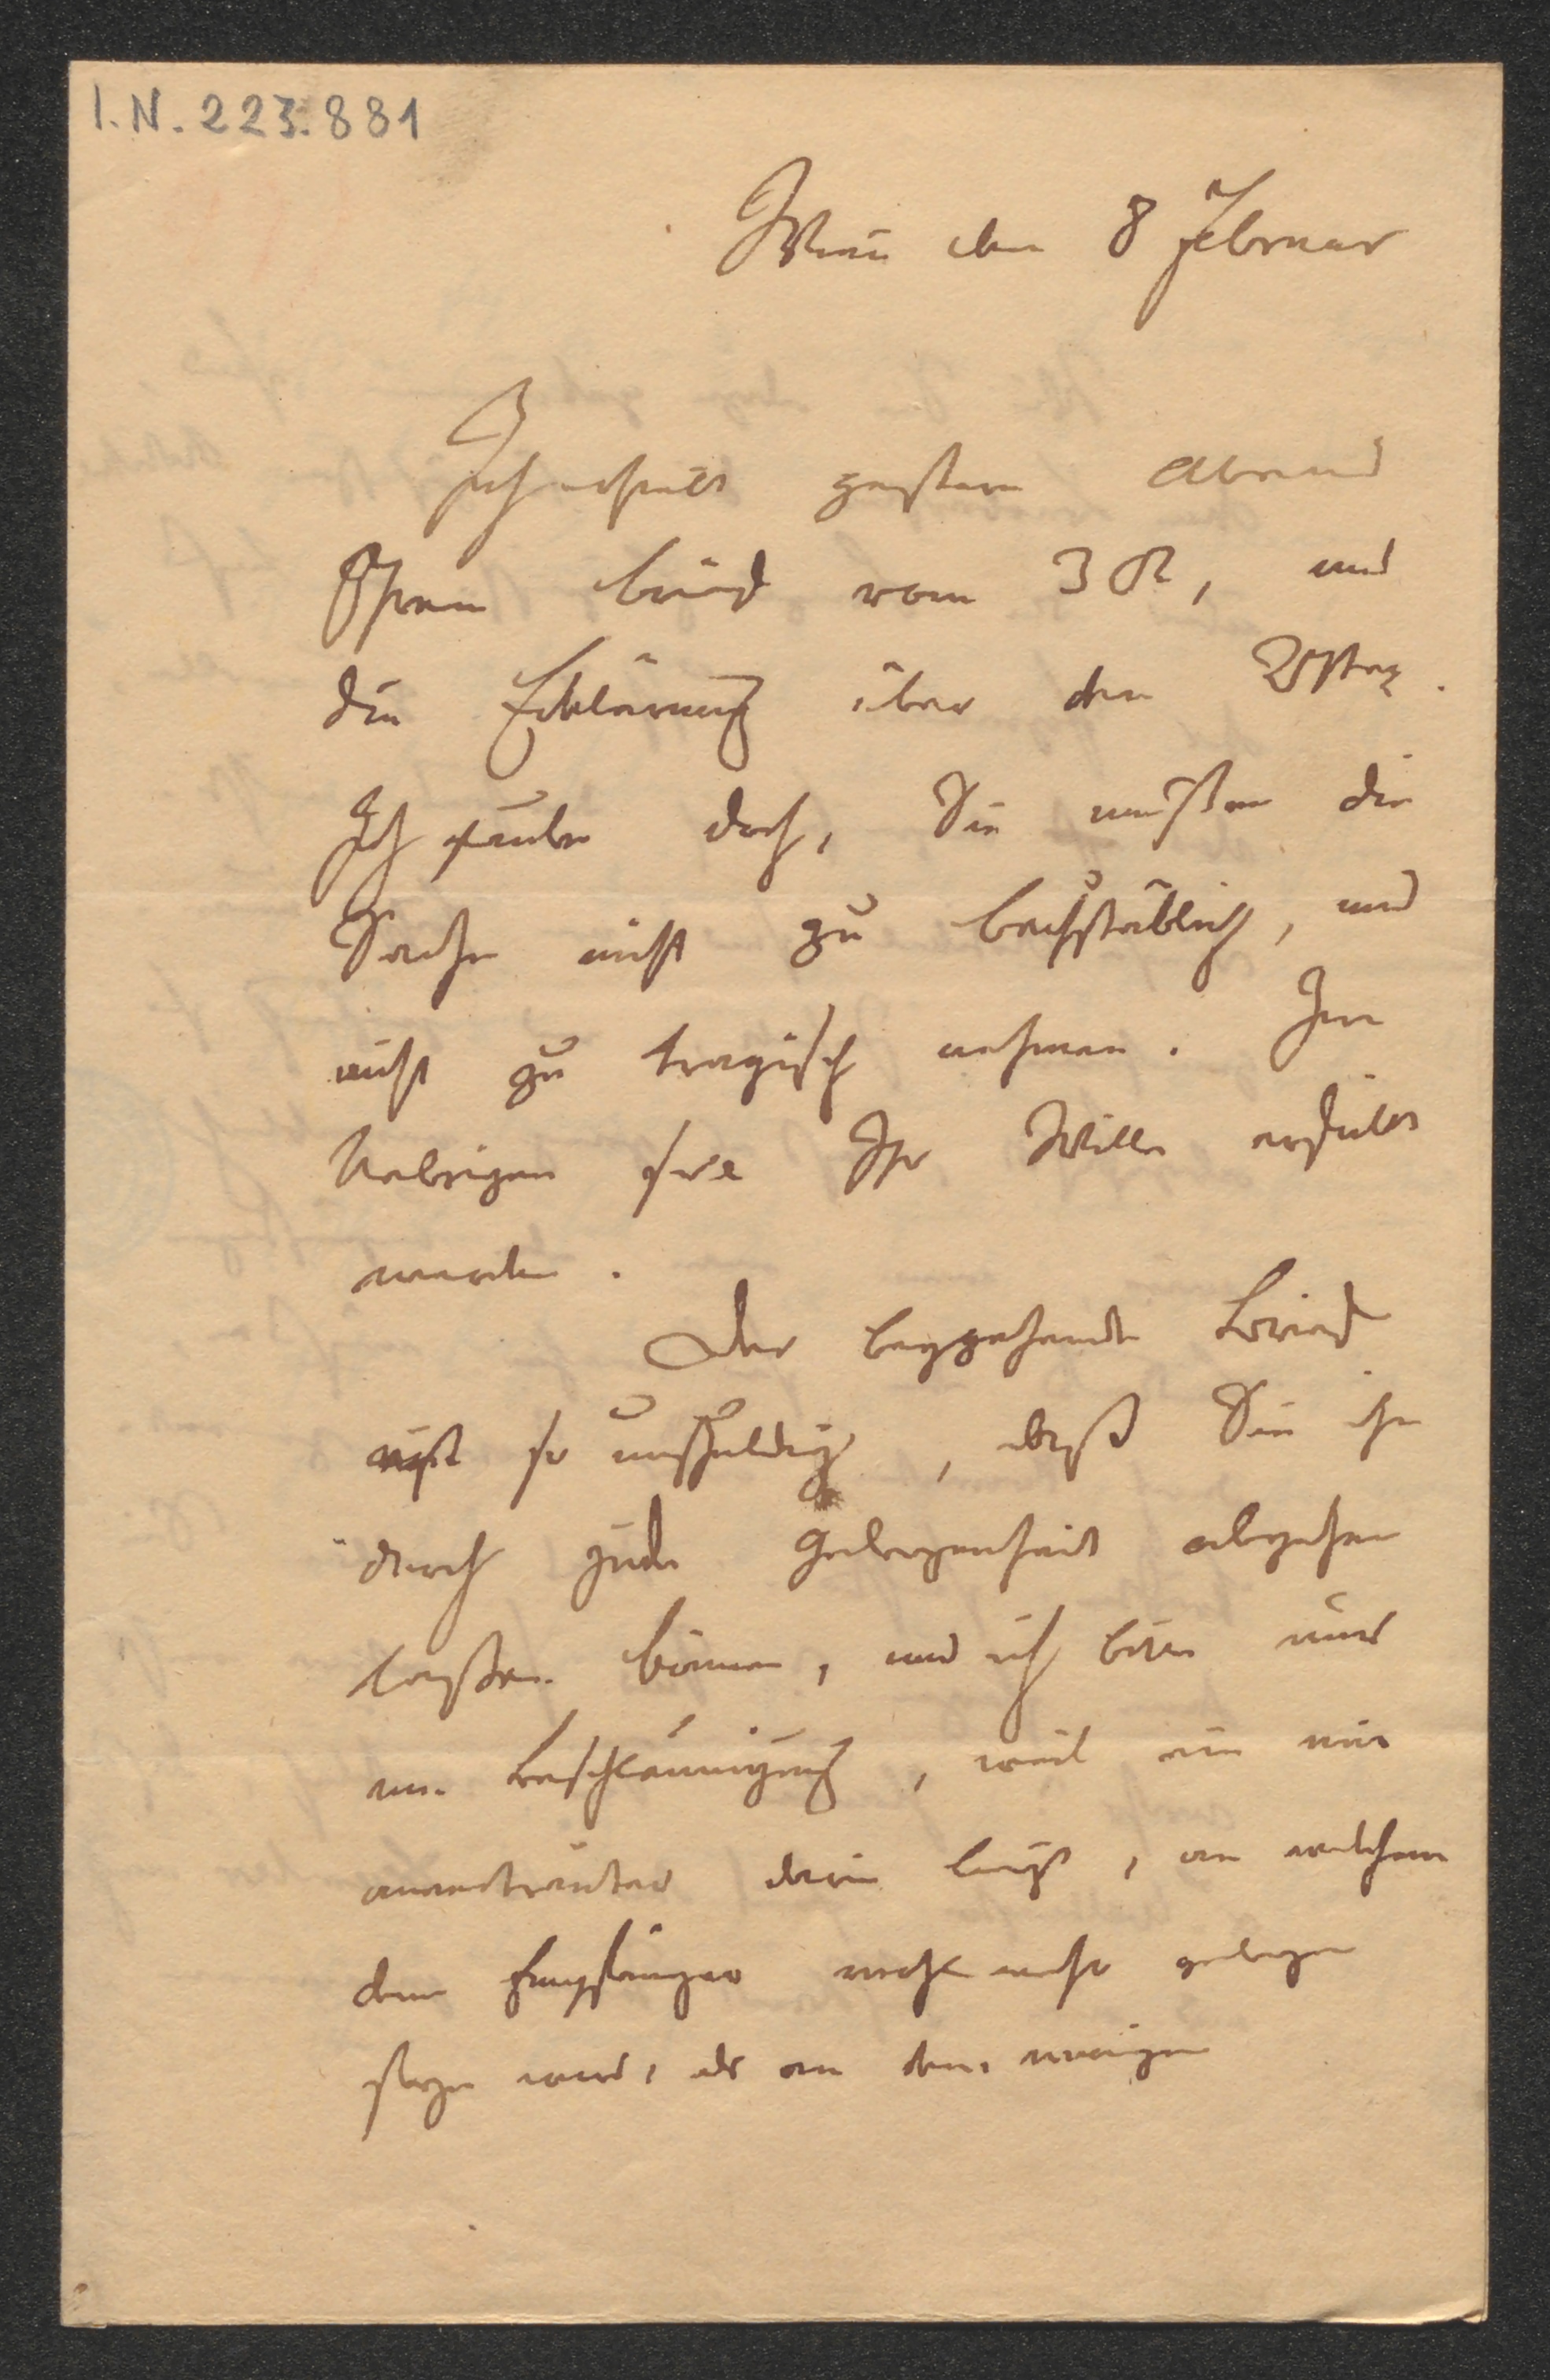 I.N. 223.881
Wien den 8 Februar
Ich erhielt gestern Abend
Ihren Brief vom 3 t, und
die Erklärung über den
Ich glaube doch, Sie mußten die
Sache nicht zu buchstäblich, und
nicht zu tragisch nehmen. Im
Uebrigen soll Ihr Wille erfüllt
werden.
Der beygehende Brief
ist so unschuldig, daß Sie ihn
durch jede Gelegenheit abgehen
laßen können, und ich bitte nur
um Beschleunigung, weil ein mir
anvertrauter darin liegt, an welchem
dem Empfänger wohl mehr gelegen
seyn wird, als an dem meinigen